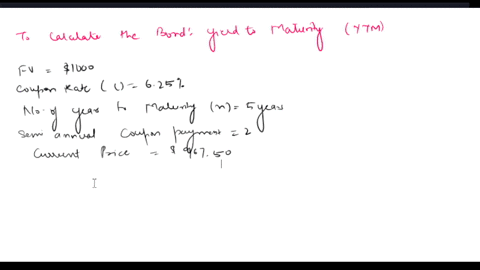 To Calculate the Bond's yield to Maturity (YTM)
FV = $1000
Coupon Rate (i) = 6.25%
No. of years to Maturity (n) = 5 years
Semi annual Coupon payment = 2
Current Price = $ 967.50